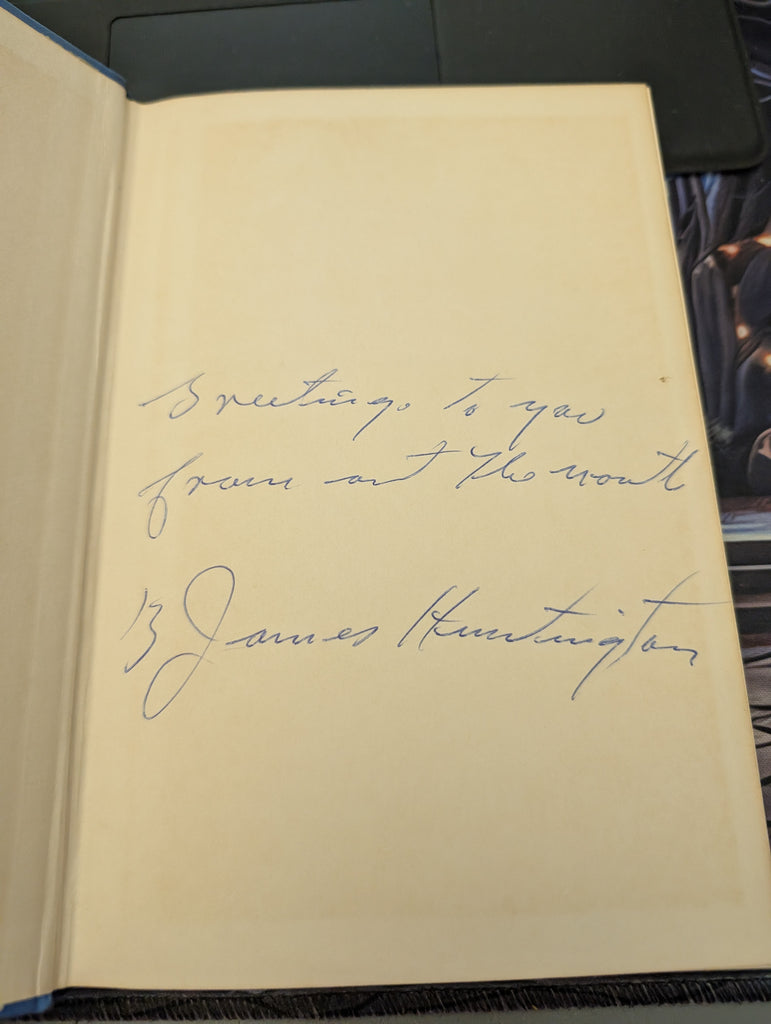 Greetings to you
from out the north
By James Huntington